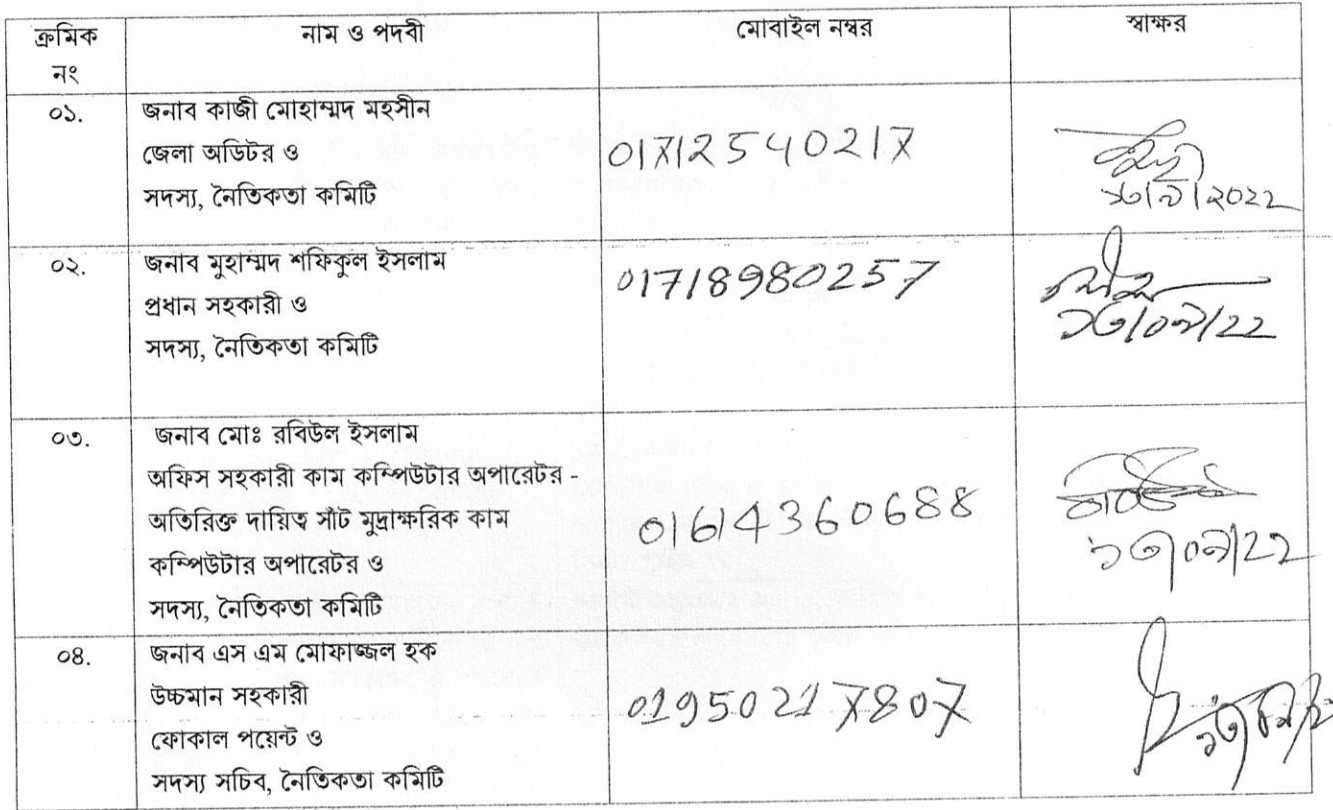 ক্রমিক নং
নাম ও পদবী
মোবাইল নম্বর
স্বাক্ষর
০১.
জনাব কাজী মোহাম্মদ মহসীন
জেলা অডিটর ও
সদস্য, নৈতিকতা কমিটি
01712540217
০২.
জনাব মুহাম্মদ শফিকুল ইসলাম
প্রধান সহকারী ও
সদস্য, নৈতিকতা কমিটি
01718980257
০৩.
জনাব মোঃ রবিউল ইসলাম
অফিস সহকারী কাম কম্পিউটার অপারেটর -
অতিরিক্ত দায়িত্ব সাঁট মুদ্রাক্ষরিক কাম
কম্পিউটার অপারেটর ও
সদস্য, নৈতিকতা কমিটি
01614360688
০৪.
জনাব এস এম মোফাজ্জল হক
উচ্চমান সহকারী
ফোকাল পয়েন্ট ও
সদস্য সচিব, নৈতিকতা কমিটি
01950217807